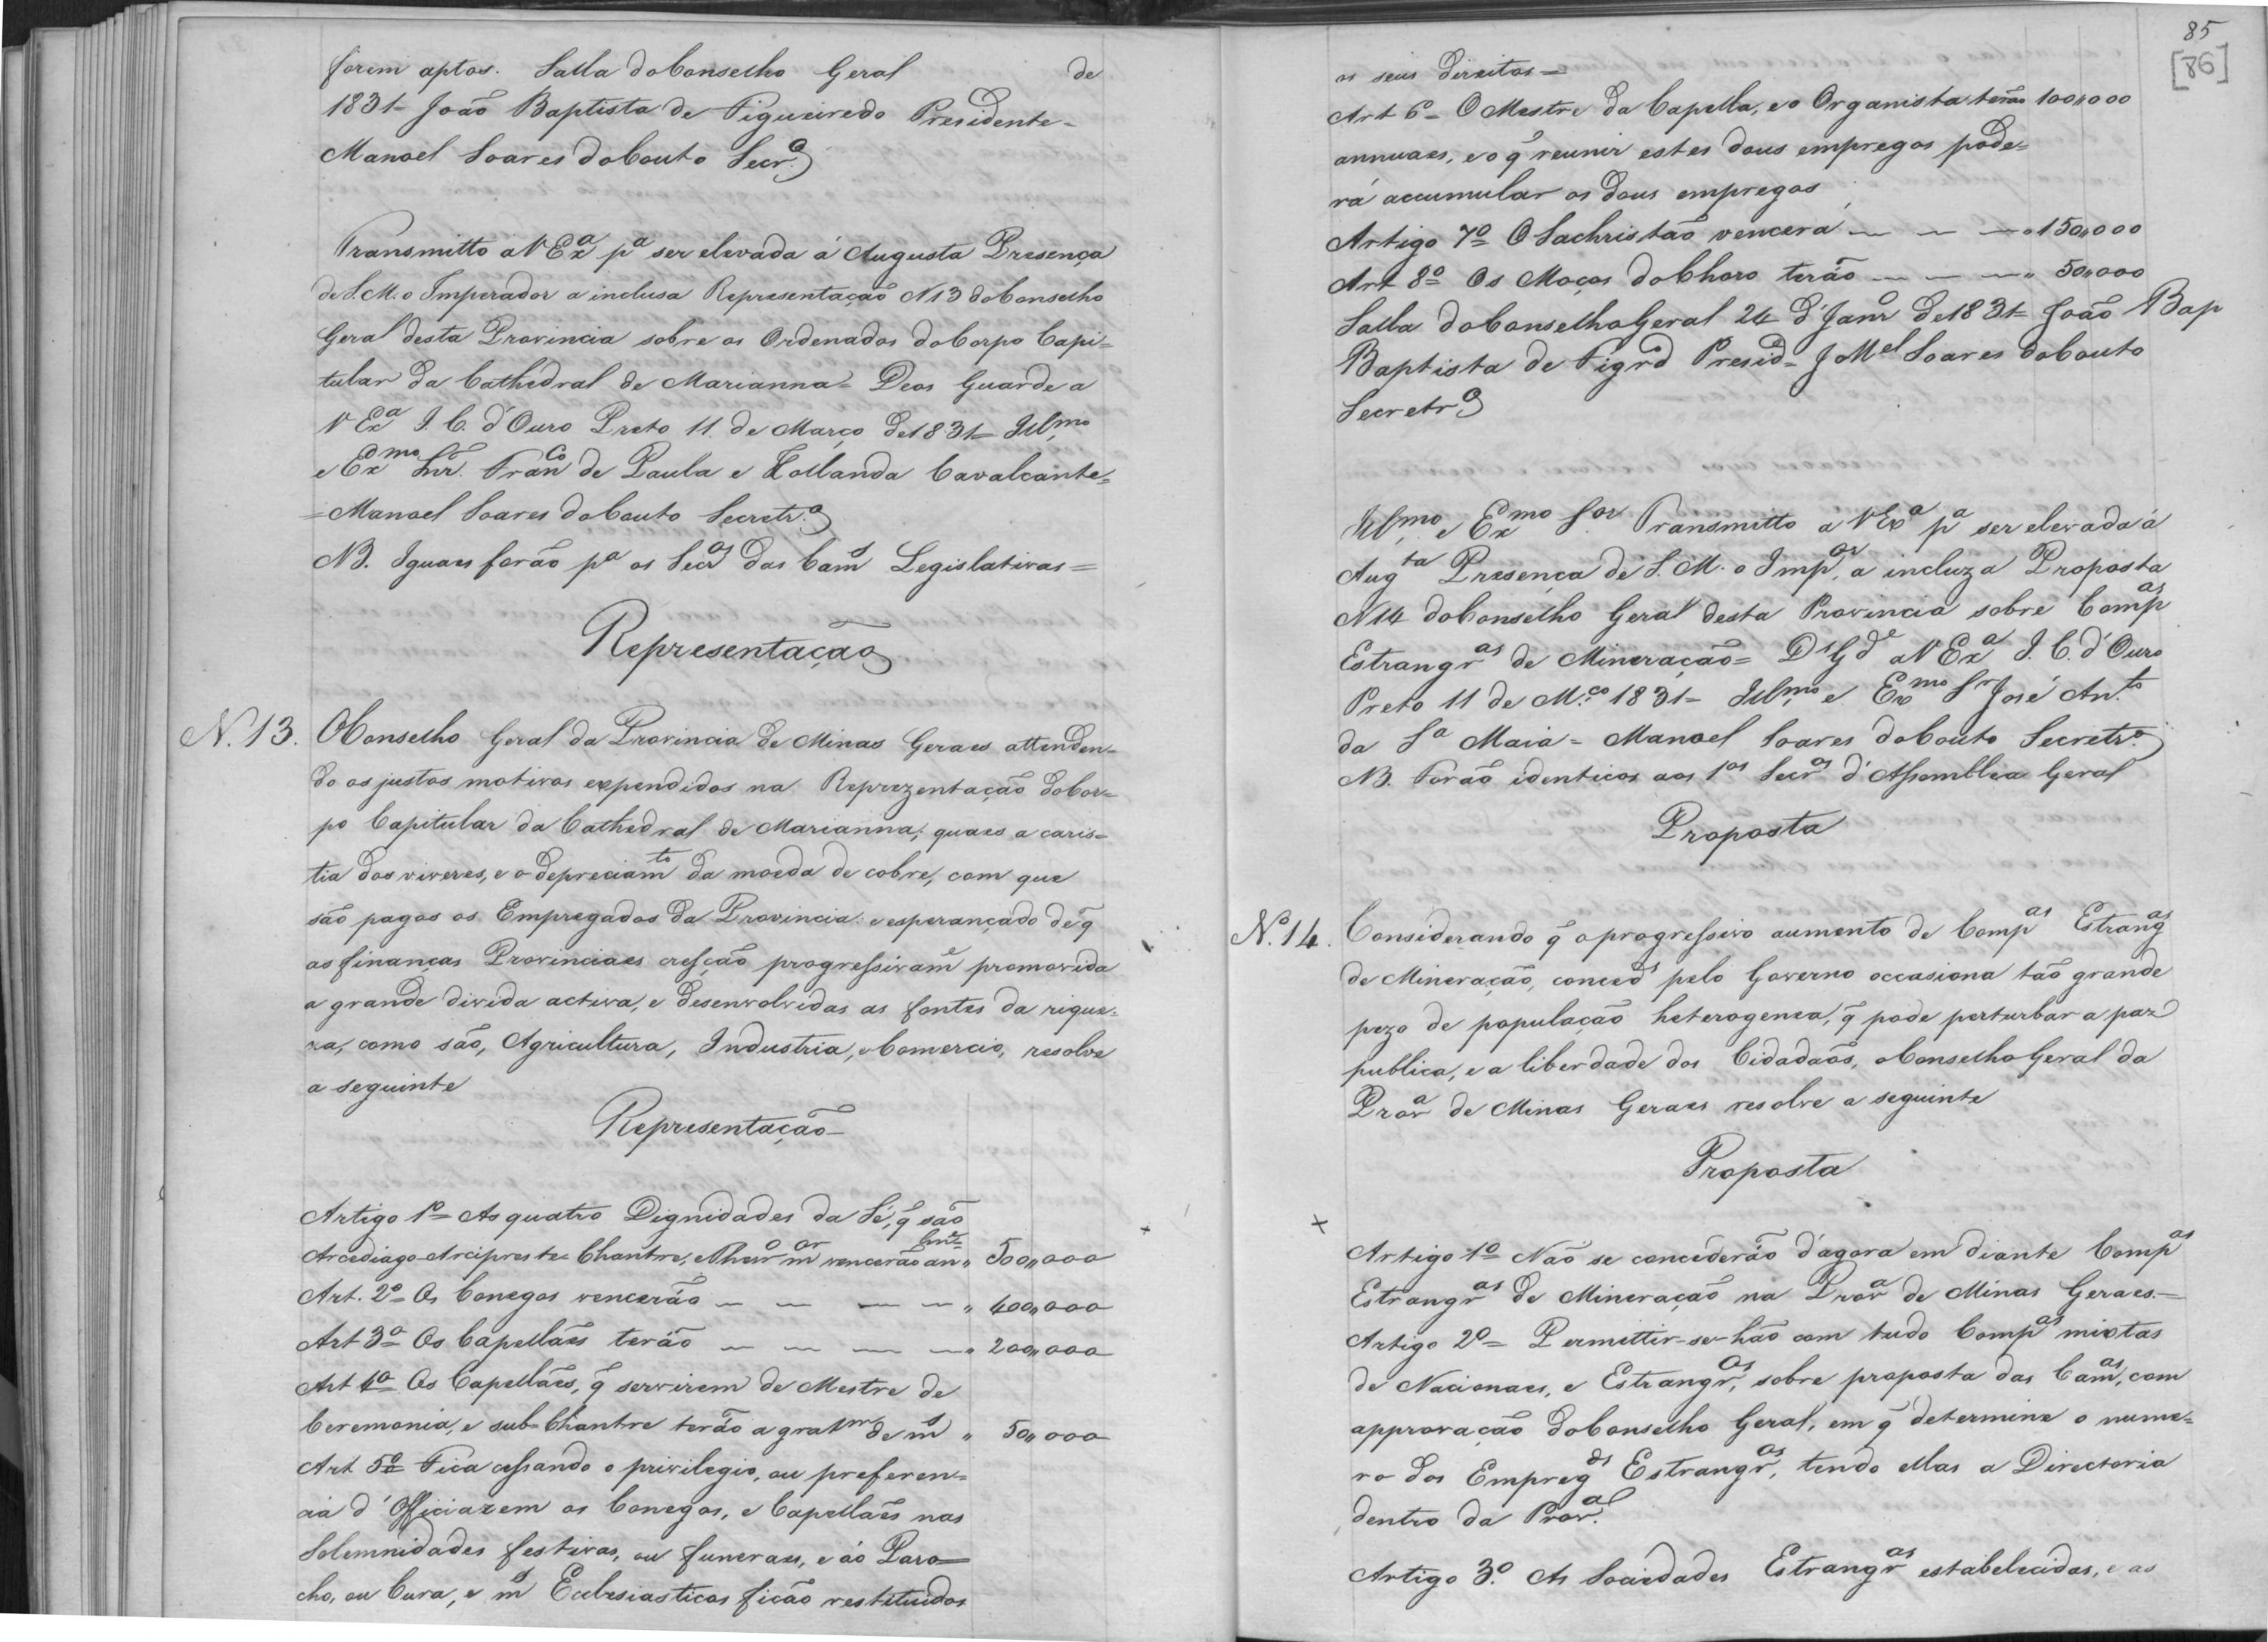 forem aptos. Salla do Conselho Geral de
1831 = João Baptista de Figueiredo Presidente =
Manoel Soares do Couto Secr.º
Transmitto a V Exª pª ser elevada á Augusta Presença
de S. M. o Imperador a inclusa Representação N 13 do Conselho
Geral desta Provincia sobre os Ordenados do Corpo Capi=
tular da Cathedral de Marianna = Deos Guarde a
V Exª I. C. d'Ouro Preto 11 de Março de 1831 = Illmo
e Exmo Snr. Franco de Paula e Hollanda Cavalcante =
= Manoel Soares do Couto Secretr.º
NB. Iguaes forão pª os Secros das Cams Legislativas =
Representação
N. 13. O Conselho Geral da Provincia de Minas Geraes attenden=
do os justos motivos expendidos na Reprezentação do Cor=
po Capitular da Cathedral de Marianna, quaes a caris=
tia dos viveres, e o depreciamto da moeda de cobre, com que
são pagos os Empregados da Provincia: e esperançado de q̃
as finanças Provinciaes cresção progressivame promovida
a grande divida activa, e desenvolvidas as fontes da rique=
za, como são, Agricultura, Industria, e Comercio, resolve
a seguinte
Representação
Artigo 1º = As quatro Dignidades da Sé, q̃ são
Arcediago - Arcipreste - Chantre, e Thesro mor vencerão an " 500,,000
Art. 2º = Os Conegos vencerão — — — — " 400,,000
Art 3º = Os Capellães terão — — — — " 200,,000
Art 4º = Os Capellães, q̃ servirem de Mestre de
Ceremonia, e sub-Chantre terão a gratm de ms " 50,,000
Art 5º = Fica cessando o privilegio, ou preferen=
cia d'Officiarem os Conegos, e Capellães nas
Solemnidades festivas, ou funeraes, e áo Paro=
cho, ou Cura, e ms Ecclesiasticos ficão restituidos
85
[86]
os seus direitos =
Art 6º = O Mestre da Capella, e o Organista terão 100,,000
annuaes, e o q̃ reunir estes dous empregos pode=
rá accumular os dous empregos
Artigo 7º = O Sachristão vencerá — — — " 150,,000
Art 8º = Os Moços do Choro terão — — — " 50,,000
Salla do Conselho Geral 24 d'Janrº de 1831 = João Bap
Baptista de Figrd Presid = J Mel Soares do Couto
Secretrº
Illmo e Exmo Sor Transmitto a V Exª pª ser elevada á
Augta Presença de S. M. o Impor, a incluza Proposta
N 14 do Conselho Geral desta Provincia sobre Compas
Estrangras de Mineração = Ds Gde a V Exª I. C. d'Ouro
Preto 11 de M.ço 1831 = Illmo e Exmo Sr José An.to
da Sª Maia = Manoel Soares do Couto Secretr.º
NB. Forão identicos aos 1os Secros d'Assemblea Geral
Proposta
N.º 14. Considerando q̃ o progressivo aumento de Compas Estrangas
de Mineração, conceds pelo Governo occasiona tão grande
pezo de população heterogenea, q̃ pode perturbar a paz
publica, e a liberdade dos Cidadaõs, o Conselho Geral da
Provª de Minas Geraes resolve a seguinte
Proposta
Artigo 1º = Não se concederáõ d'agora em diante Compas
Estrangras de Mineração na Provª de Minas Geraes. =
Artigo 2º = Permittir-se-hão com tudo Compas mixtas
de Nacionaes, e Estrangros, sobre proposta das Camas, com
approvação do Conselho Geral, em q̃ determine o nume=
ro dos Empregds Estrangros, tendo ellas a Directoria
dentro da Prov.ª
Artigo 3.º As Sociedades Estrangras estabelecidas, e as